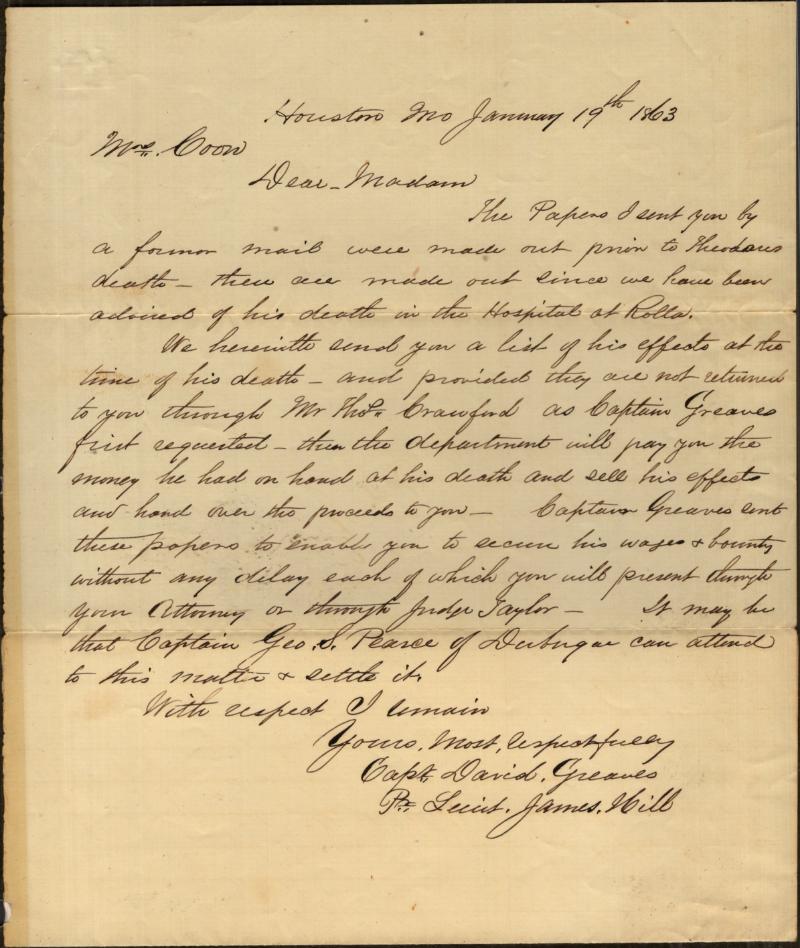 Houston Mo January 19th 1863
Mrs. Coon
Dear Madam
The Papers I sent you by
a former mail were made out prior to Theodores
death - these are made out since we have been
advised of his death in the Hospital at Rolla.
We herewith send you a list of his effects at the
time of his death - and provided they are not returned
to you through Mr Thos. Crawford as Captain Greaves
first requested - then the department will pay you the
money he had on hand at his death and sell his effects
and hand over the proceeds to you - Captain Greaves sent
these papers to enable you to secure his wages & bounty
without any delay each of which you will present through
your Attorney or through Judge Taylor - It may be
that Captain Geo. S. Pearce of Dubuque can attend
to this matter & settle it.
With respect I remain
Yours, Most, respectfully
Capt. David. Greaves
Pr. Lieut. James. Hill